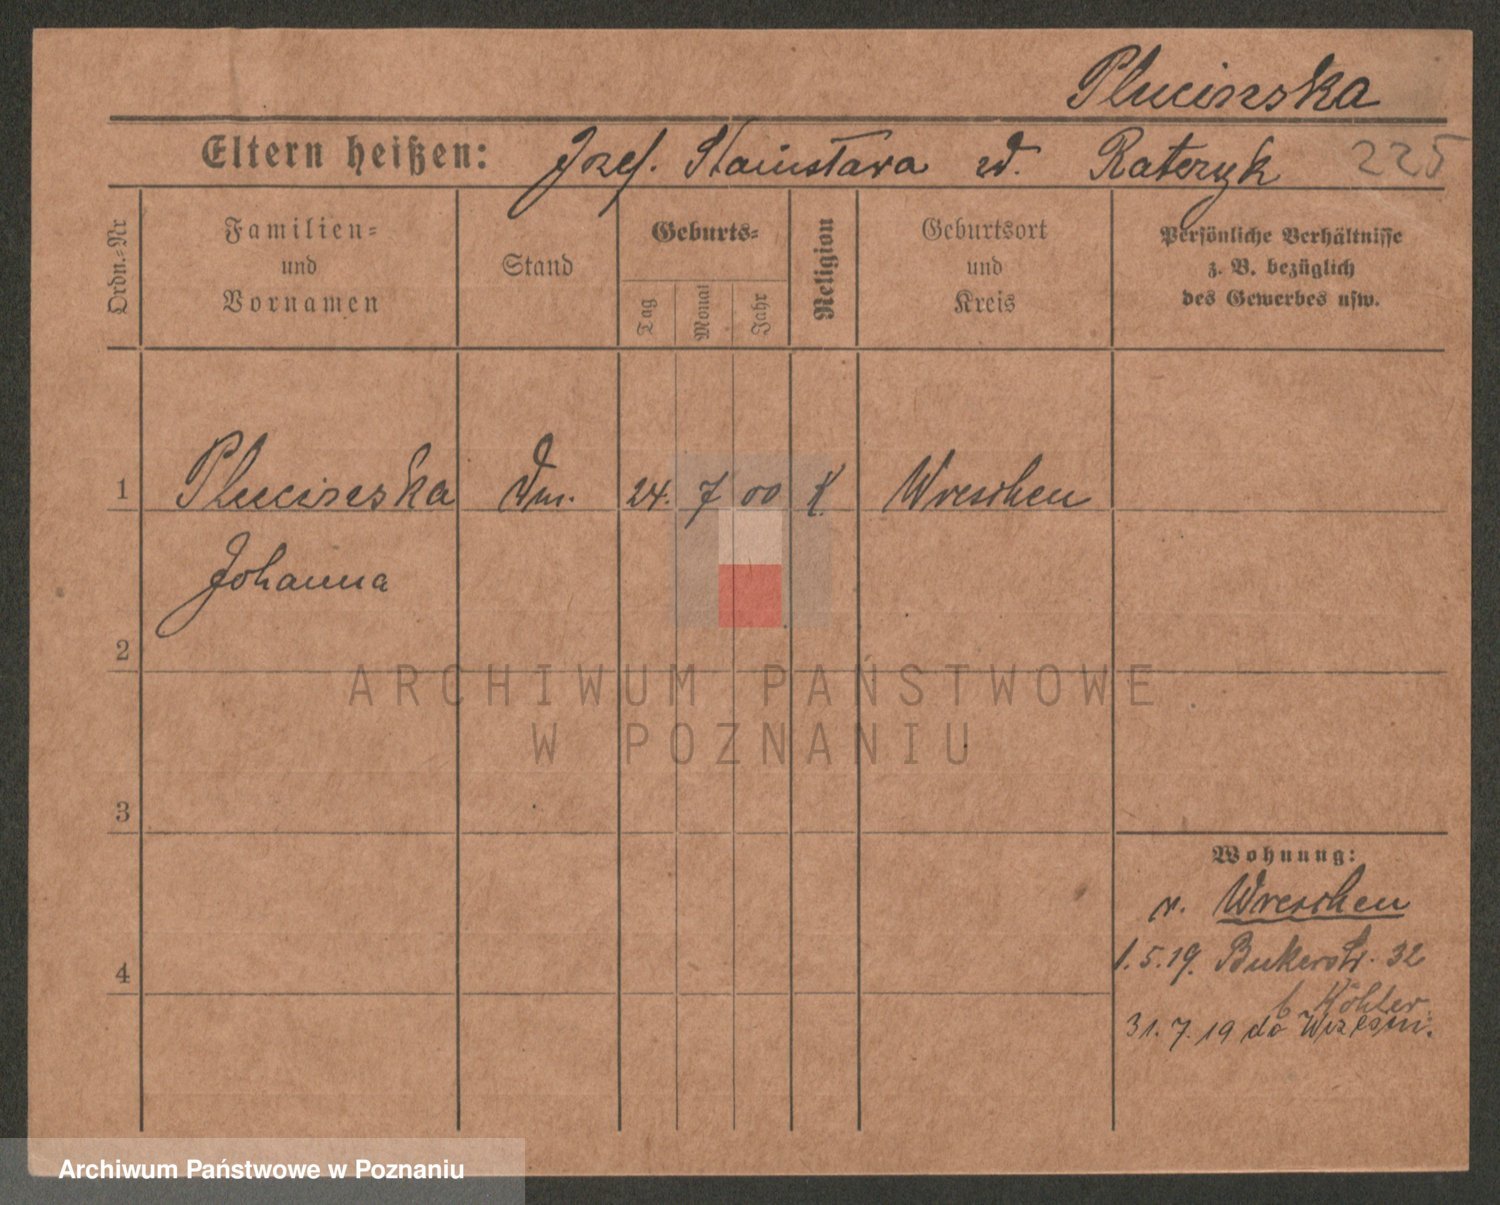 Plucinska
Eltern heißen: Jozef. Stanisłava d. Rateryk 225
Ordn.-Nr
Familien-
und
Vornamen
Stand
Geburts-
Tag
Monat
Jahr
Religion
Geburtsort
und
Kreis
Persönliche Verhältnisse
z. B. bezüglich
des Gewerbes usw.
1 Plucinska 24. 7 00 K Wreschen
Johanna
2
3
4
Wohnung:
v. Wreschen
1.5.19. Bukerstr. 32
b Köhler
31.7.19 do Wrześni.
ARCHIWUM PAŃSTWOWE
W POZNANIU
Archiwum Państwowe w Poznaniu